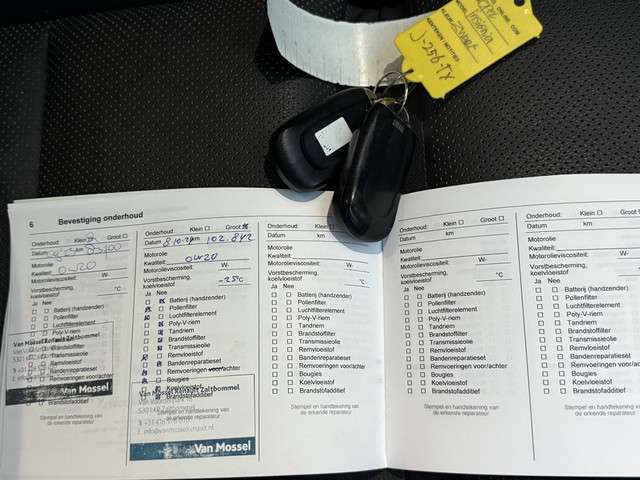 ONLINE.COM
Insignia
Zwart
J-256-TX
6 Bevestiging onderhoud
Onderhoud: Klein Groot
Datum km
Motorolie
Kwaliteit:
0W20
Motorolieviscositeit: W-
Vorstbescherming,
koelvloeistof °C
Ja Nee
Batterij (handzender)
Pollenfilter
Luchtfilterelement
Poly-V-riem
Brandstoffilter
Transmissieolie
Remvloeistof
Bandenreparatieset
Remvoeringen voor/achter
Bougies
Koelvloeistof
Brandstofadditief
Van Mossel Renault Zaltbommel
Van Mossel
Stempel en handtekening van
de erkende reparateur
Onderhoud: Klein Groot
Datum 8-10-24 km 102.842
Motorolie
Kwaliteit: 0W20
Motorolieviscositeit: W-
Vorstbescherming,
koelvloeistof -25°C
Ja Nee
Batterij (handzender)
Pollenfilter
Luchtfilterelement
Poly-V-riem
Tandriem
Brandstoffilter
Transmissieolie
Remvloeistof
Bandenreparatieset
Remvoeringen voor/achter
Bougies
Koelvloeistof
Brandstofadditief
Van Mossel Renault Zaltbommel
Stempel en handtekening van
de erkende reparateur
Van Mossel
Onderhoud: Klein Groot
Datum km
Motorolie
Kwaliteit:
Motorolieviscositeit: W-
Vorstbescherming,
koelvloeistof °C
Ja Nee
Batterij (handzender)
Pollenfilter
Luchtfilterelement
Poly-V-riem
Tandriem
Brandstoffilter
Transmissieolie
Remvloeistof
Bandenreparatieset
Remvoeringen voor/achter
Bougies
Koelvloeistof
Brandstofadditief
Stempel en handtekening van
de erkende reparateur
Onderhoud: Klein Groot
Datum km
Motorolie
Kwaliteit:
Motorolieviscositeit: W-
Vorstbescherming,
koelvloeistof °C
Ja Nee
Batterij (handzender)
Pollenfilter
Luchtfilterelement
Poly-V-riem
Tandriem
Brandstoffilter
Transmissieolie
Remvloeistof
Bandenreparatieset
Remvoeringen voor/achter
Bougies
Koelvloeistof
Brandstofadditief
Stempel en handtekening van
de erkende reparateur
Onderhoud: Klein
Datum km
Motorolie
Kwaliteit:
Motorolieviscositeit:
Vorstbescherming,
koelvloeistof
Ja Nee
Batterij (handzender)
Pollenfilter
Luchtfilterelement
Poly-V-riem
Tandriem
Brandstoffilter
Transmissieolie
Remvloeistof
Bandenreparatieset
Remvoeringen voor/achter
Bougies
Koelvloeistof
Brandstofadditief
Stempel en handtekening van
de erkende reparateur